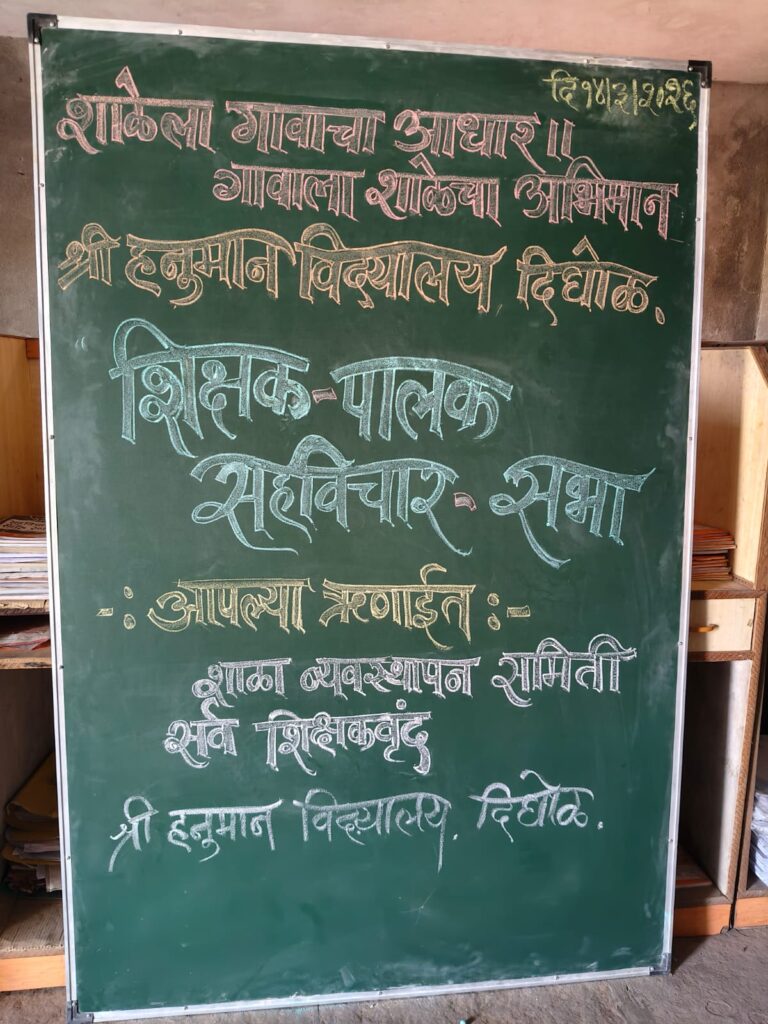 दि १४/३/२०२६
शाळेला गावाचा आधार ॥
गावाला शाळेचा अभिमान
श्री हनुमान विद्यालय, दिघोळ.
शिक्षक - पालक
सहविचार - सभा
-: आपल्या ऋणाईत :-
शाळा व्यवस्थापन समिती
सर्व शिक्षकवृंद
श्री हनुमान विद्यालय. दिघोळ.